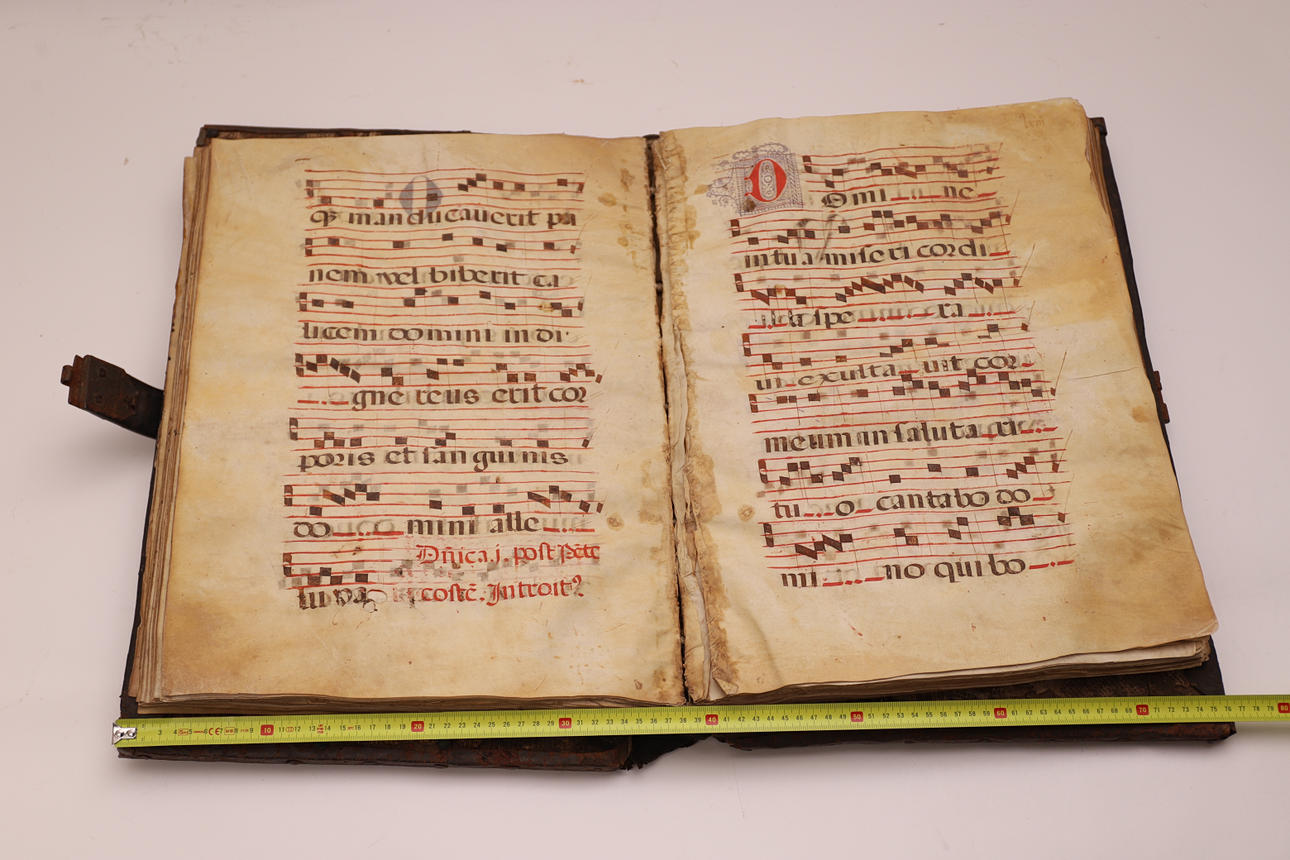 Qꝫ manducauerit pa
nem vel biberit ca
licem domini indi
gne reus erit cor
poris et sanguinis
do mini alle
Dñica.j. post Pẽte
luya costẽ. Introit
Domi ne
in tua miseri cordi
spe ra
ui exulta uit cor
meum in saluta ri
tu o cantabo do
mi no qui bo
10 20 30 40 50 60 70 80